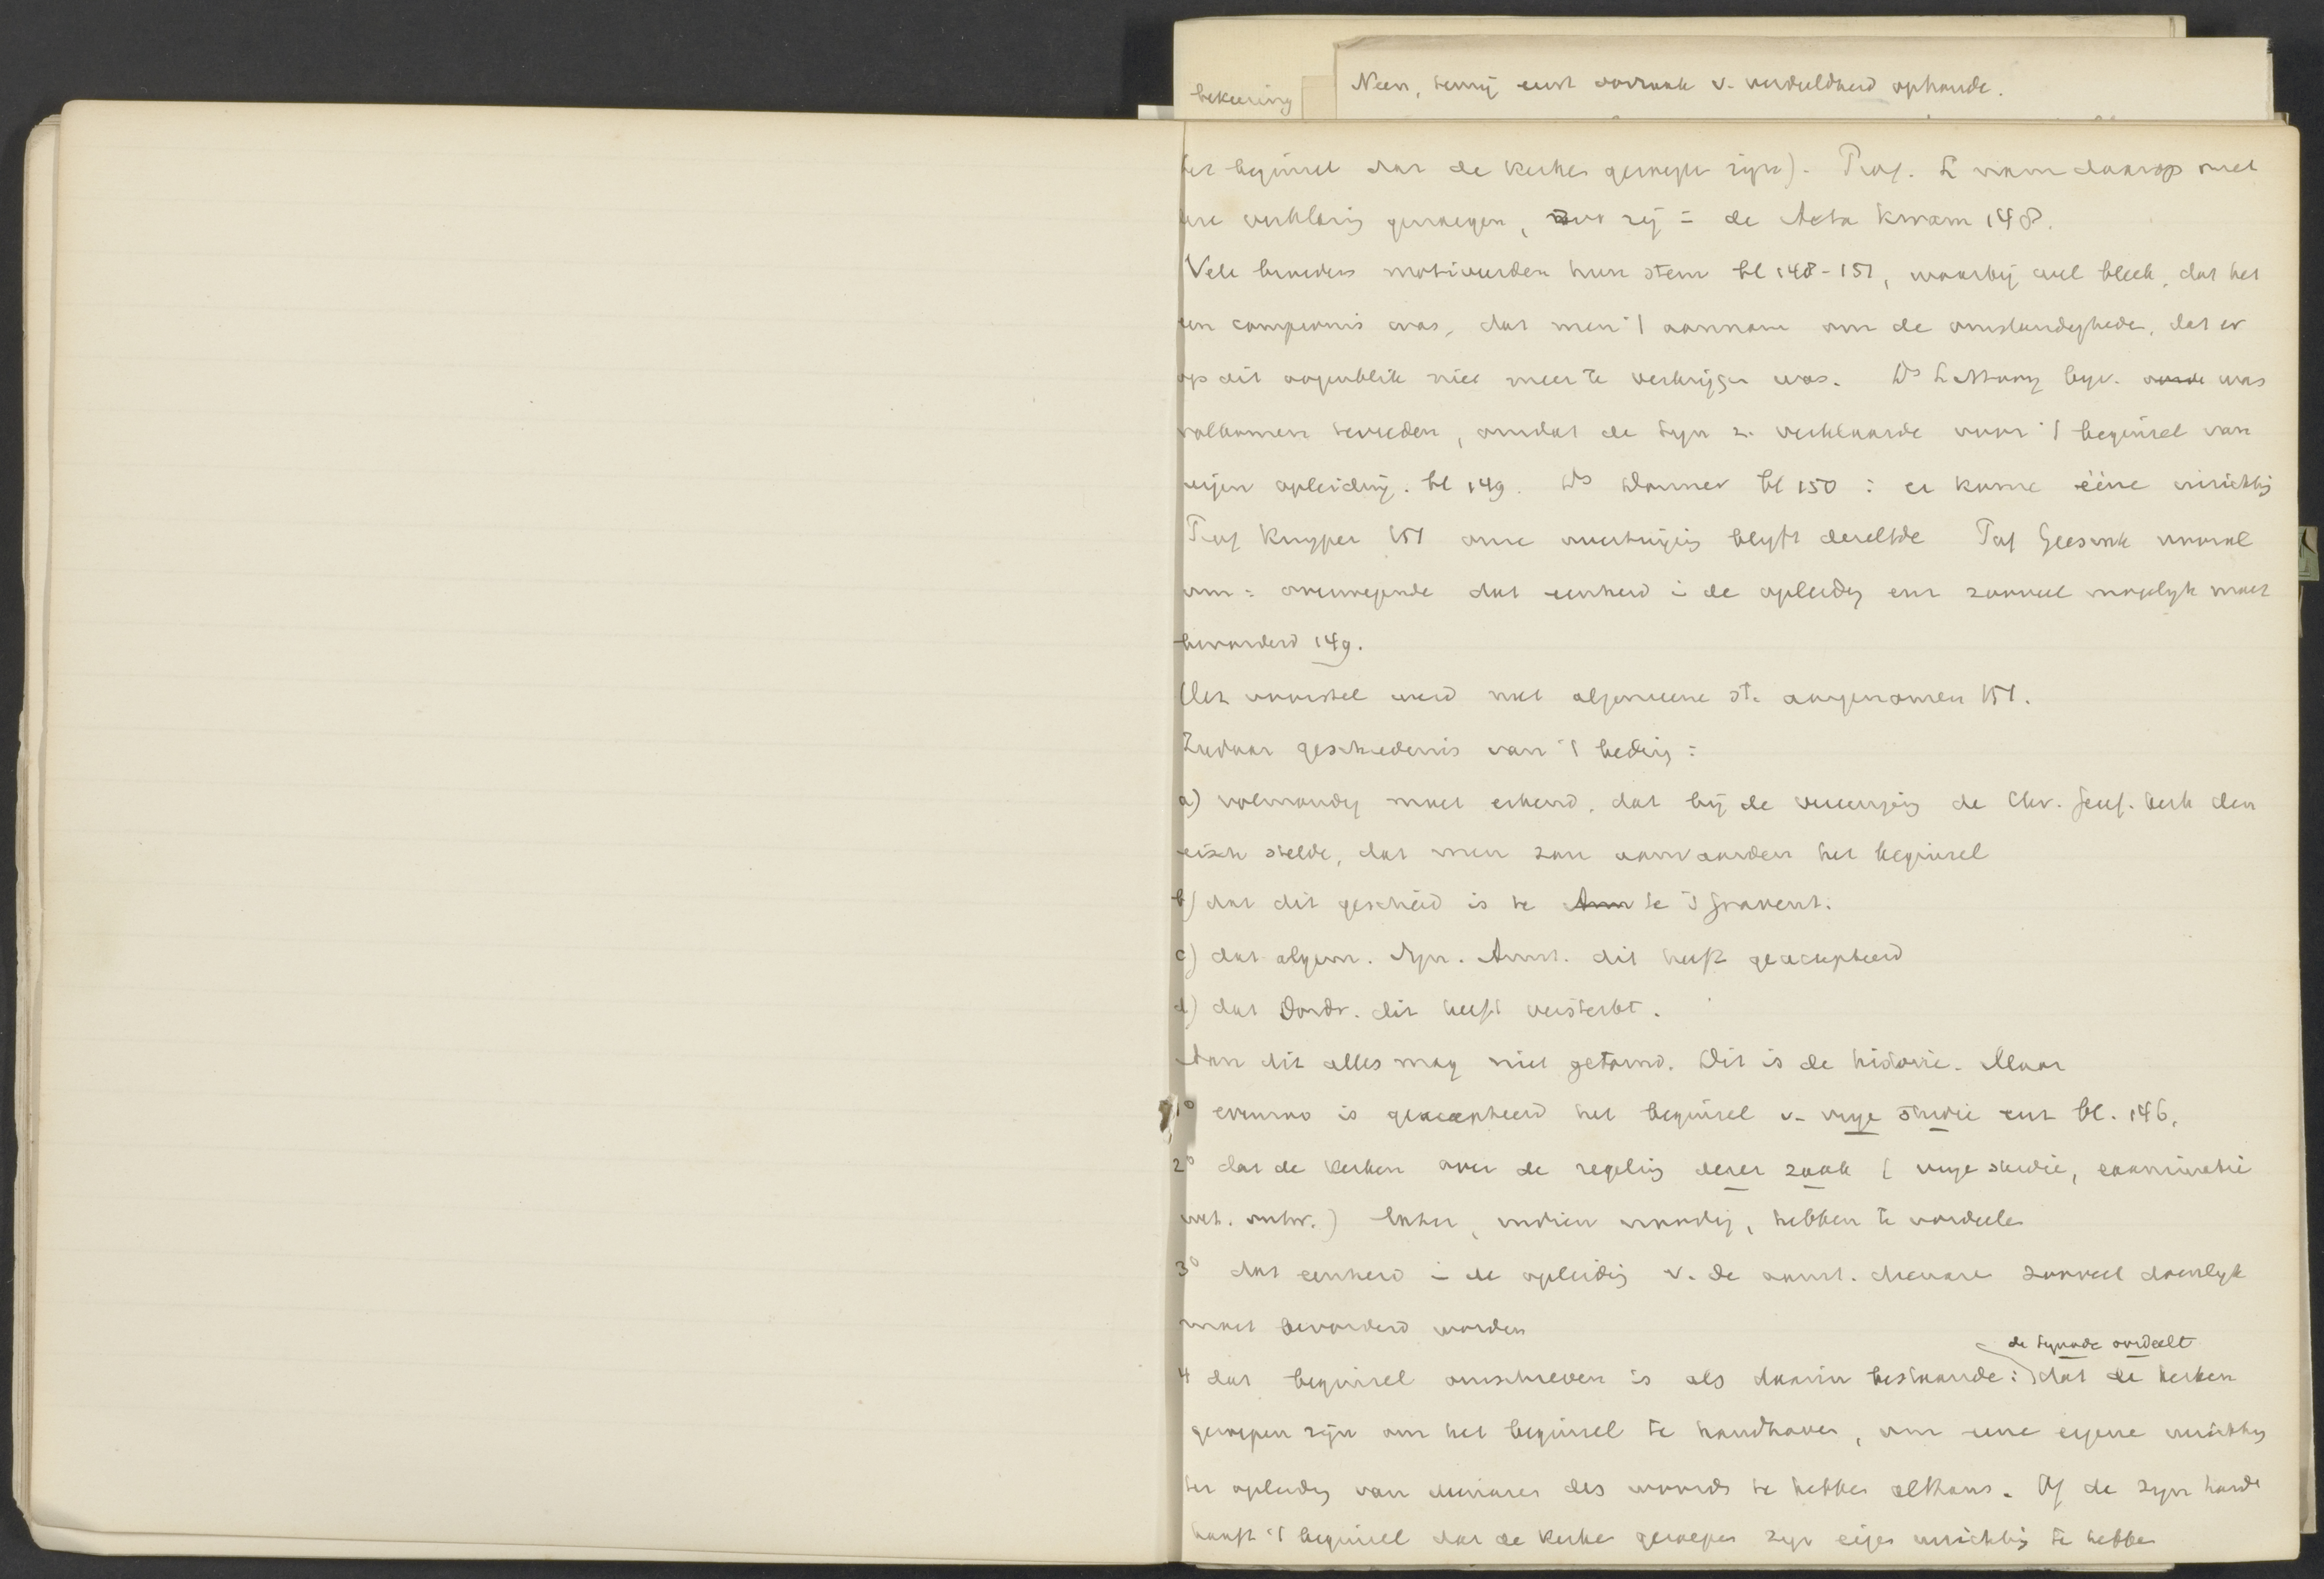 bekeering
Neen, tenzij eerst oorzaak v. verdeeldheid ophoude.
het beginsel dat de kerken geroepen zijn). Prof. L nam daarop met
verklaring genoegen, zij = de Acta kwam 148.
Vele broeders motiveerden hun stem bl 148-151, waarbij wel bleek, dat het
een compromis was, dat men 't aannam om de omstandigheden, dat er
op dit oogenblik niet meer te verkrijgen was. Ds Littooy bijv. was
volkomen tevreden, omdat de Syn z. verklaarde voor 't beginsel van
eigen opleiding. bl 149. Ds Donner bl 150 : er kome ééne inrichting
Prof Kuyper 151 onze overtuiging blijft dezelfde Prof Geesink vooral
om = overwegende dat eenheid in de opleiding enz zooveel mogelijk moet
bevorderd 149.
Het voorstel werd met algemeene st. aangenomen 151.
Ziedaar geschiedenis van 't beding :
a) volmondig moet erkend, dat bij de vereeniging de Chr. Geref. kerk den
eisch stelde, dat men zou aanvaarden het beginsel
b) dat dit geschied is te Am te 's Gravenh.
c) dat algem. Syn. Amst. dit heeft geaccepteerd
d) dat Dordr. dit heeft versterkt.
Aan dit alles mag niet getornd. Dit is de historie. Maar
1° evenzoo is geaccepteerd het beginsel v. vrije studie enz bl. 146.
2° dat de kerken over de regeling dezer zaak (vrije studie, examinatie
wet. ontw.) later, indien noodig, hebben te oordeelen
3° dat eenheid in de opleiding v. de aanst. dienaren zooveel doenlijk
moet bevorderd worden
de Synode oordeelt
4 dat beginsel omschreven is als daarin bestaande : dat de kerken
geroepen zijn om het beginsel te handhaven, om eene eigene inrichting
ter opleiding van dienaren des woords te hebben althans. Of de Syn had
't beginsel dat de kerken geroepen zijn eigen inrichting te hebben